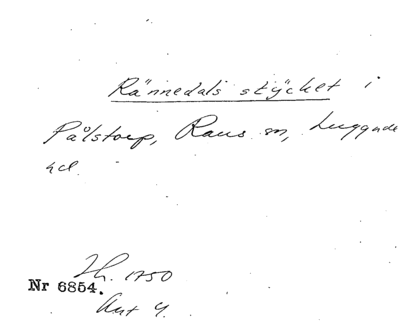 Rännedals stycket i
Pålstorp, Raus sn, Luggude
hd.
Lh. 1750
Nr 6854.
Akt 4.